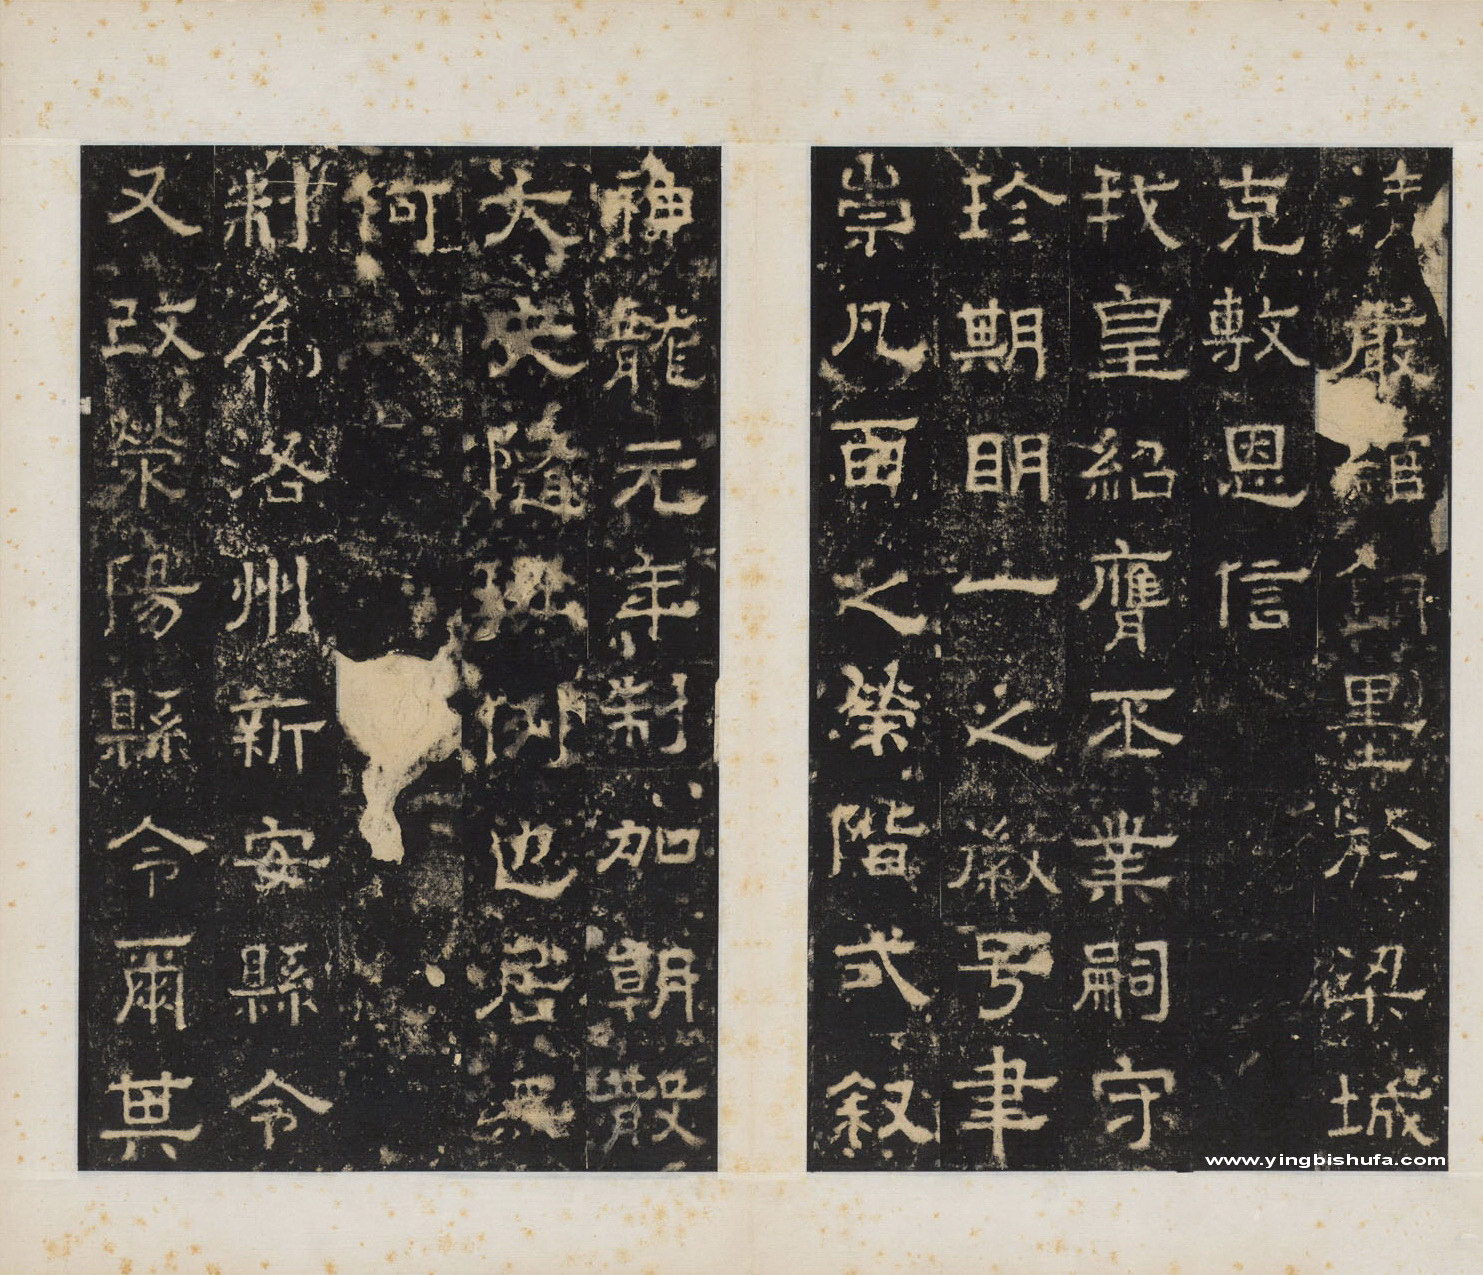 嚴綰銅墨於梁城
克敷恩信
我皇紹膺丕業嗣守
珍期明一之徽号聿
崇凡百之榮階式叙
神龍元年制加朝散
大夫隨班例也居無
何
制為洛州新安縣令
又改滎陽縣令爾其
www.yingbishufa.com